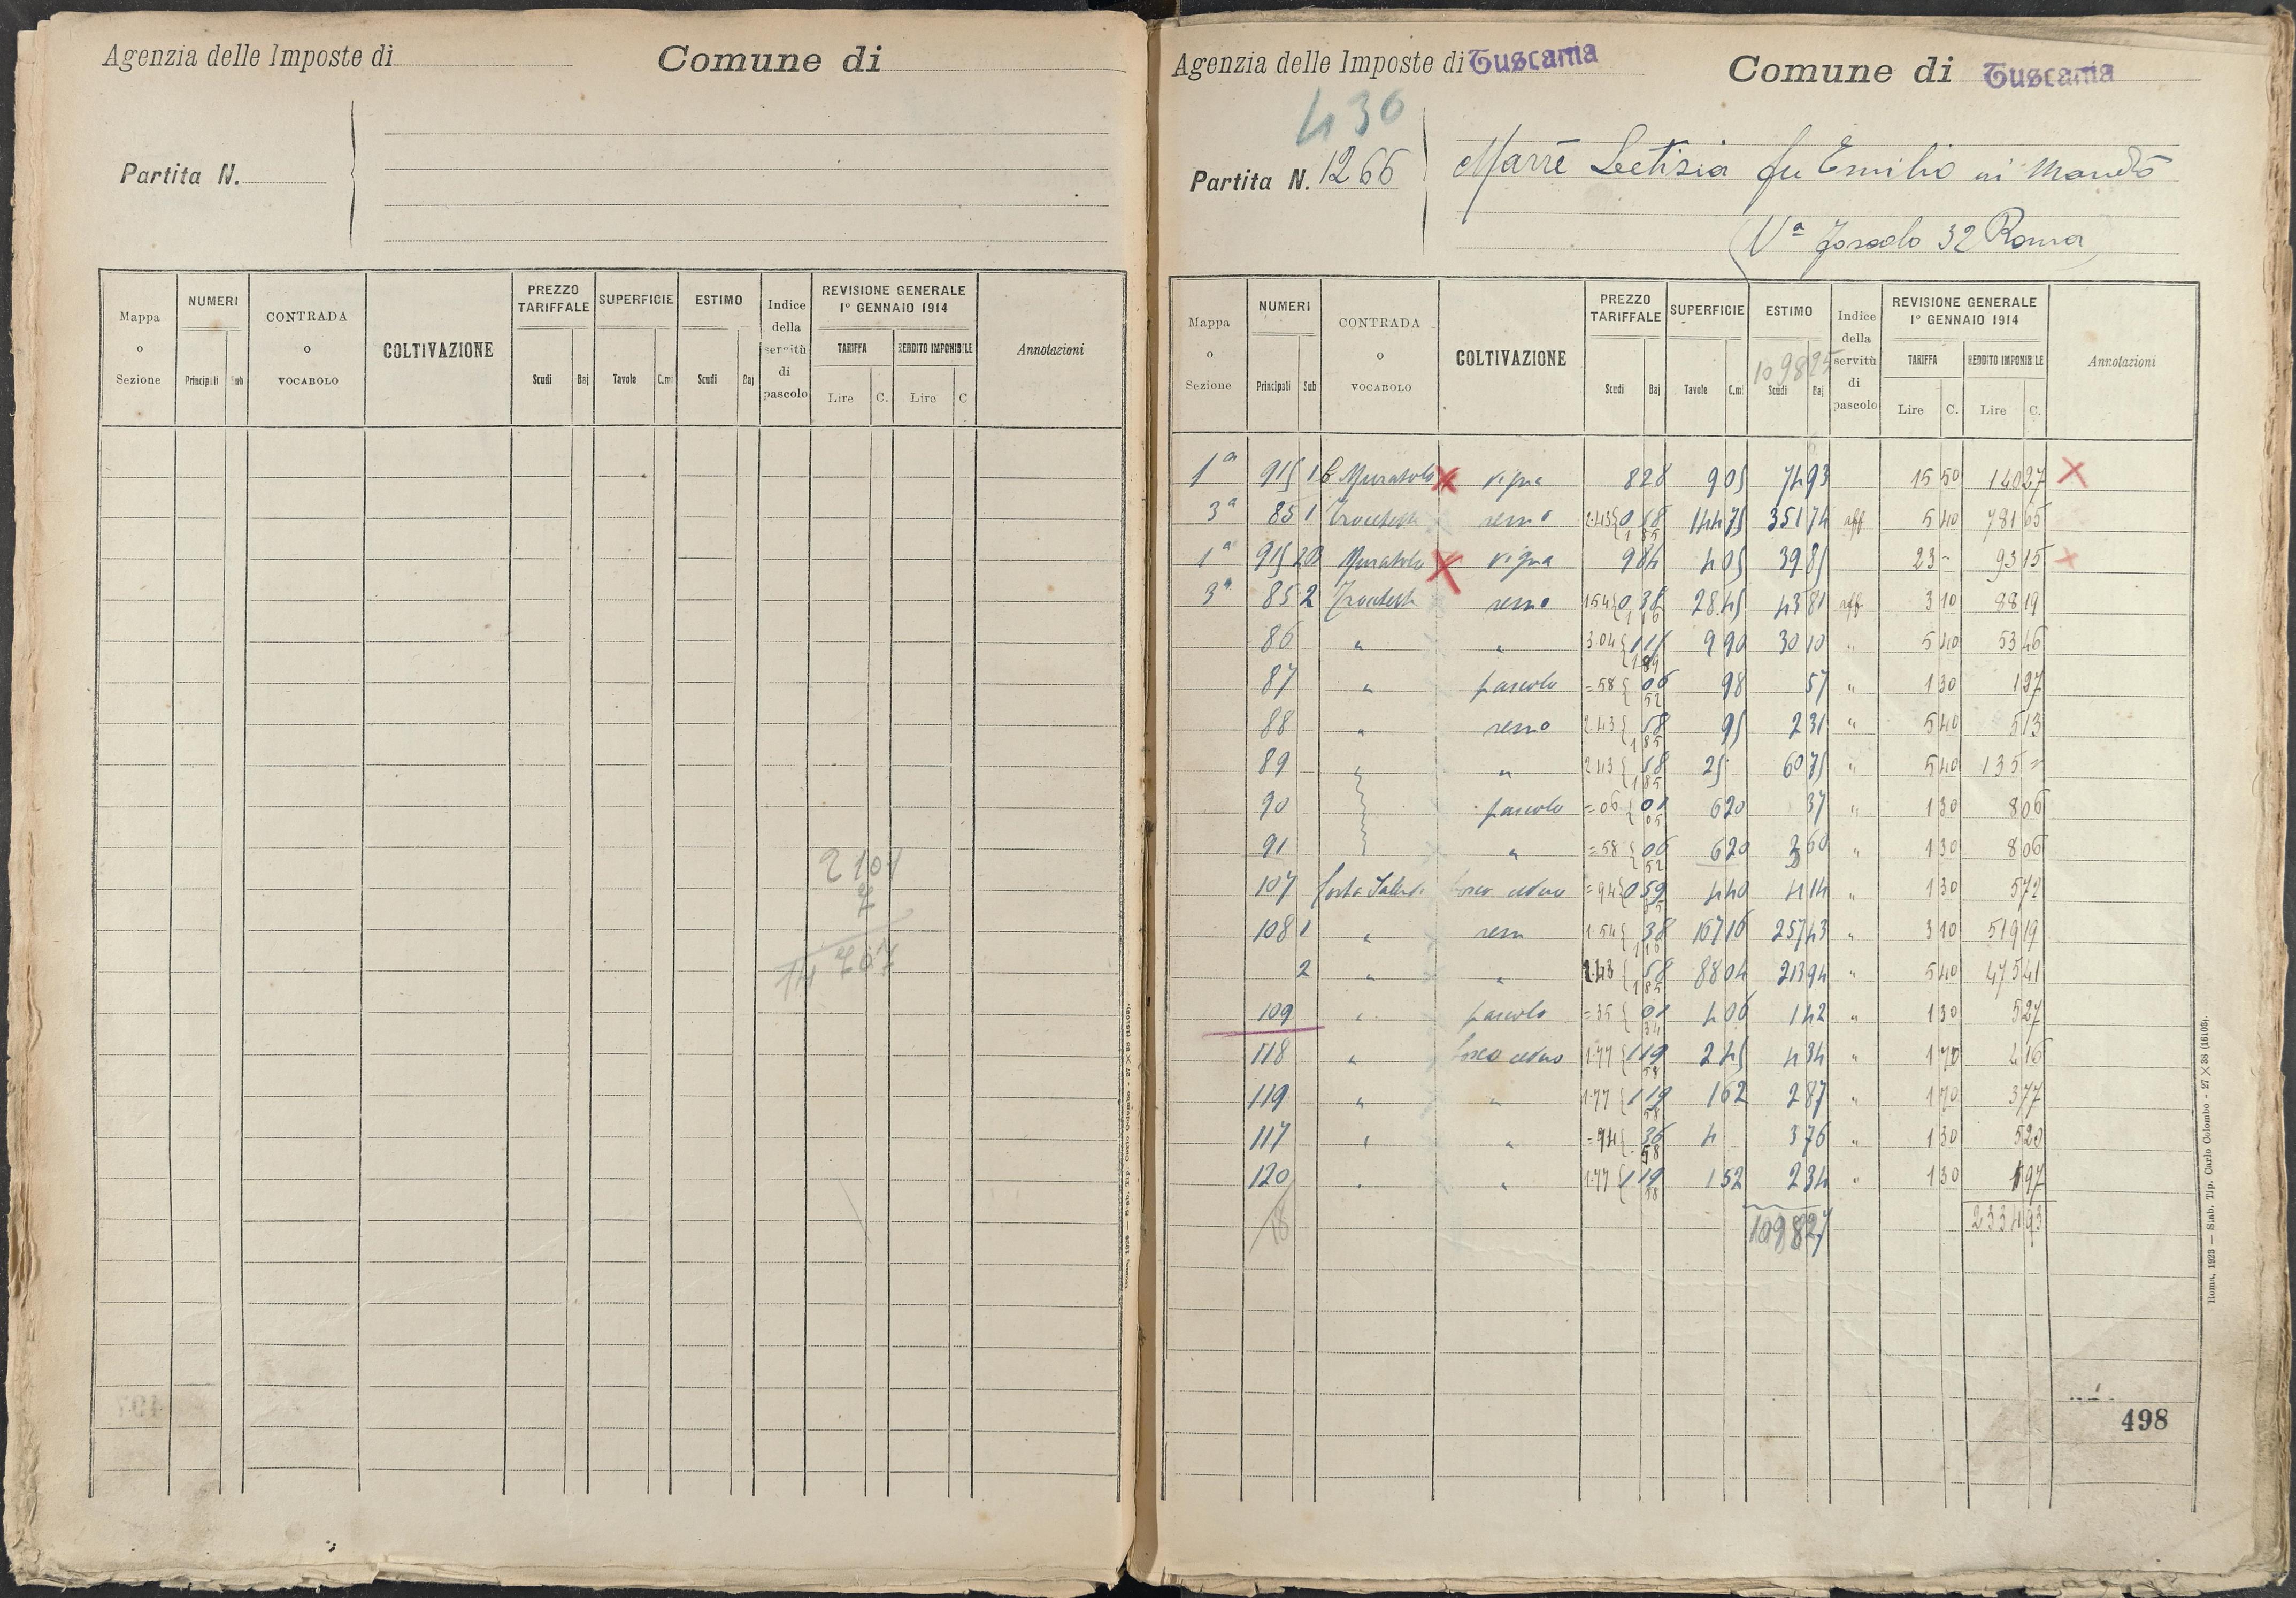 Agenzia delle Imposte di
Comune di
Partita N.
Mappa o Sezione
NUMERI
Principali Sub
CONTRADA o VOCABOLO
COLTIVAZIONE
PREZZO TARIFFALE
Scudi Baj
SUPERFICIE
Tavole C.mi
ESTIMO
Scudi Baj
Indice della servitù di pascolo
REVISIONE GENERALE 1º GENNAIO 1914
TARIFFA
Lire C.
REDDITO IMPONIBILE
Lire C
Annotazioni
Agenzia delle Imposte di Tuscania
Comune di Tuscania
430
Partita N. 1266
Marrè Letizia fu Emilio in
Vª 32 Roma
Mappa o Sezione
NUMERI
Principali Sub
CONTRADA o VOCABOLO
COLTIVAZIONE
PREZZO TARIFFALE
Scudi Baj
SUPERFICIE
Tavole C.mi
ESTIMO
109825
Scudi Baj
Indice della servitù di pascolo
REVISIONE GENERALE 1º GENNAIO 1914
TARIFFA
Lire C.
REDDITO IMPONIBILE
Lire C.
Annotazioni
1ª 915 1 vigna 8 28 9 05 74 93 15 50 140 27 X
3ª 85 1 2.43 0 58 1 85 144 75 351 74 aff 5 40 781 65
1ª 915 2B vigna 9 84 4 05 39 85 23 - 93 15 X
3ª 85 2 1.54 0 38 1 16 28 45 43 81 aff 3 10 88 19
86 " " 3.04 1 15 1 89 9 90 30 10 " 5 40 53 46
87 " pascolo =58 06 52 98 57 " 1 30 1 27
88 " 2.43 58 1 85 95 2 31 " 5 40 5 13
89 " 2.43 58 1 85 25 60 75 " 5 40 135 =
90 pascolo =06 01 05 6 20 37 " 1 30 8 06
91 " =58 06 52 6 20 3 60 " 1 30 8 06
107 bosco ceduo =94 0 59 35 4 40 4 14 " 1 30 5 72
108 1 " 1.54 38 1 16 167 16 257 43 " 3 10 519 19
2 " " 2.43 58 1 85 88 04 213 94 " 5 40 475 41
109 " pascolo =35 01 34 4 06 1 42 " 1 30 5 27
118 " bosco ceduo 1.77 1 19 58 2 45 4 34 " 1 70 4 16
119 " " 1.77 1 19 58 1 62 2 87 " 1 70 3 77
117 " " =94 36 58 4 3 76 " 1 30 5 20
120 " " 1.77 1 19 58 1 52 2 34 " 1 30 1 97
18 1098 27 2334 93
498
Roma, 1923 — Stab. Tip. Carlo Colombo - 27 × 38 (16103).